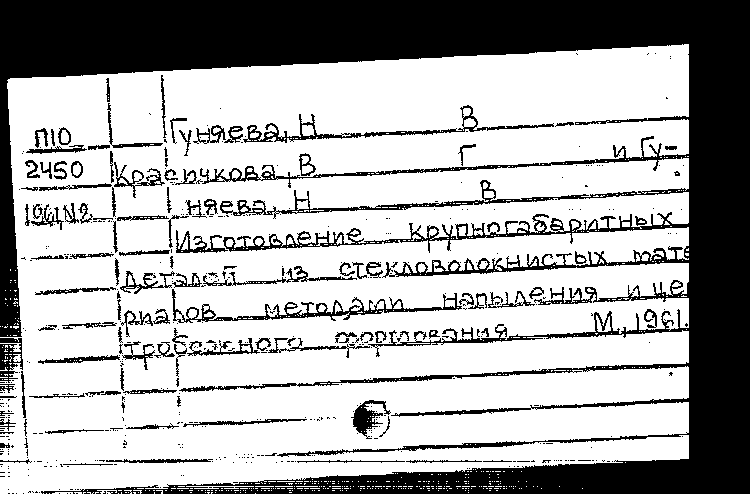 П10 Гуняева, Н В
2450 Красичкова, В Г и Гу-
1961, №2 няева, Н В
Изготовление крупногабаритных
деталей из стекловолокнистых мате
риалов методами напыления и це
тробежного формования М., 1961.